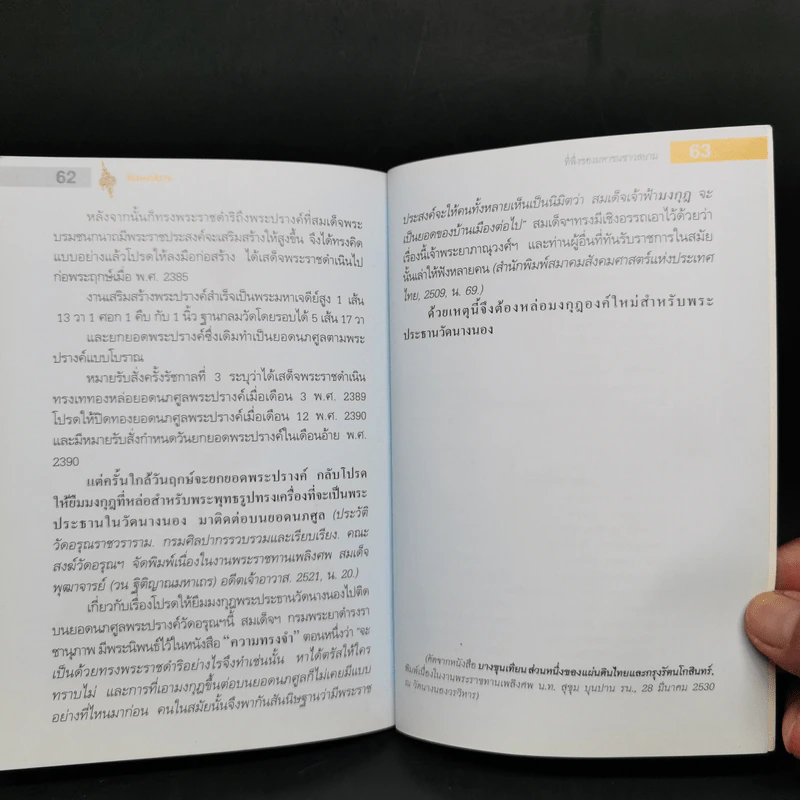 62
หลังจากนั้นก็ทรงพระราชดำริถึงพระปรางค์ที่สมเด็จพระ
บรมชนกนาถมีพระราชประสงค์จะเสริมสร้างให้สูงขึ้น จึงได้ทรงคิด
แบบอย่างแล้วโปรดให้ลงมือก่อสร้าง ได้เสด็จพระราชดำเนินไป
ก่อพระฤกษ์เมื่อ พ.ศ. 2385
งานเสริมสร้างพระปรางค์สำเร็จเป็นพระมหาเจดีย์สูง 1 เส้น
13 วา 1 ศอก 1 คืบ กับ 1 นิ้ว ฐานกลมวัดโดยรอบได้ 5 เส้น 17 วา
และยกยอดพระปรางค์ซึ่งเดิมทำเป็นยอดนภศูลตามพระ
ปรางค์แบบโบราณ
หมายรับสั่งครั้งรัชกาลที่ 3 ระบุว่าได้เสด็จพระราชดำเนิน
ทรงเททองหล่อยอดนภศูลพระปรางค์เมื่อเดือน 3 พ.ศ. 2389
โปรดให้ปิดทองยอดนภศูลพระปรางค์เมื่อเดือน 12 พ.ศ. 2390
และมีหมายรับสั่งกำหนดวันยกยอดพระปรางค์ในเดือนอ้าย พ.ศ.
2390
แต่ครั้นใกล้วันฤกษ์จะยกยอดพระปรางค์ กลับโปรด
ให้ยืมมงกุฎที่หล่อสำหรับพระพุทธรูปทรงเครื่องที่จะเป็นพระ
ประธานในวัดนางนอง มาติดต่อบนยอดนภศูล (ประวัติ
วัดอรุณราชวราราม. กรมศิลปากรรวบรวมและเรียบเรียง. คณะ
สงฆ์วัดอรุณฯ จัดพิมพ์เนื่องในงานพระราชทานเพลิงศพ สมเด็จ
พุฒาจารย์ (วน ฐิติญาณมหาเถร) อดีตเจ้าอาวาส. 2521, น. 20.)
เกี่ยวกับเรื่องโปรดให้ยืมมงกุฎพระประธานวัดนางนองไปติด
บนยอดนภศูลพระปรางค์วัดอรุณฯนี้ สมเด็จฯ กรมพระยาดำรงรา
ชานุภาพ มีพระนิพนธ์ไว้ในหนังสือ "ความทรงจำ" ตอนหนึ่งว่า "จะ
เป็นด้วยทรงพระราชดำริอย่างไรจึงทำเช่นนั้น หาได้ตรัสให้ใคร
ทราบไม่ และการที่เอามงกุฎขึ้นต่อบนยอดนภศูลก็ไม่เคยมีแบบ
อย่างที่ไหนมาก่อน คนในสมัยนั้นจึงพากันสันนิษฐานว่ามีพระราช
ที่พึ่งของมหาชนชาวสยาม 63
ประสงค์จะให้คนทั้งหลายเห็นเป็นนิมิตว่า สมเด็จเจ้าฟ้ามงกุฎ จะ
เป็นยอดของบ้านเมืองต่อไป" สมเด็จฯทรงมีเชิงอรรถเอาไว้ด้วยว่า
เรื่องนี้เจ้าพระยาภาณุวงศ์ฯ และท่านผู้อื่นที่ทันรับราชการในสมัย
นั้นเล่าให้ฟังหลายคน (สำนักพิมพ์สมาคมสังคมศาสตร์แห่งประเทศ
ไทย, 2509, น. 69.)
ด้วยเหตุนี้จึงต้องหล่อมงกุฎองค์ใหม่สำหรับพระ
ประธานวัดนางนอง
(คัดจากหนังสือ บางขุนเทียน ส่วนหนึ่งของแผ่นดินไทยและกรุงรัตนโกสินทร์,
พิมพ์เนื่องในงานพระราชทานเพลิงศพ น.ท. สุขุม บุนปาน รน., 28 มีนาคม 2530
ณ วัดนางนองวรวิหาร)